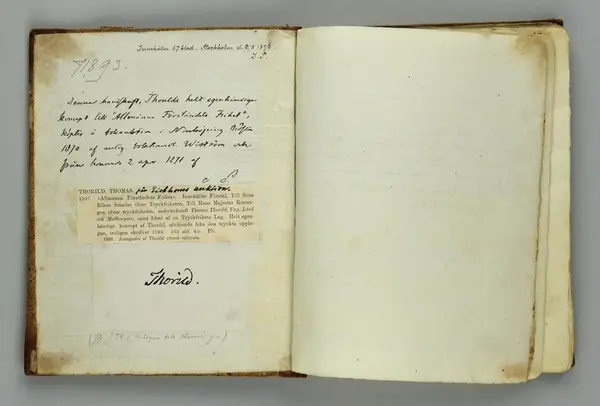 Innehåller 57 blad. Stockholm d. 2/5 1892
1893.
Denna handskrift, Thorilds helt egenhändiga
koncept till "Allmänna Förståndets Frihet",
köptes å bokauktion i Norrköping
1870 af antiq. bokhandl. Wiström och
från honom 2 apr 1871 af
THORILD, THOMAS. från Eichhorns auktion.
«Allmänna Förståndets Frihet». Innehåller Företal, Till Sven
Rikes Ständer öfver Tryckfriheten, Till Hans Majestät Konun-
gen öfver tryckfriheten, undertecknadt Thomas Thorild, Eng. Lärd
och Medborgare, samt Ideal af en Tryckfrihets Lag. Helt egen-
händigt koncept af Thorild, afvikande från den tryckta uppla-
gan, troligen skrifvet 1786. 103 sid. 4:o. Pb.
OBS. Autografer af Thorild ytterst sällsynta.
Thorild.